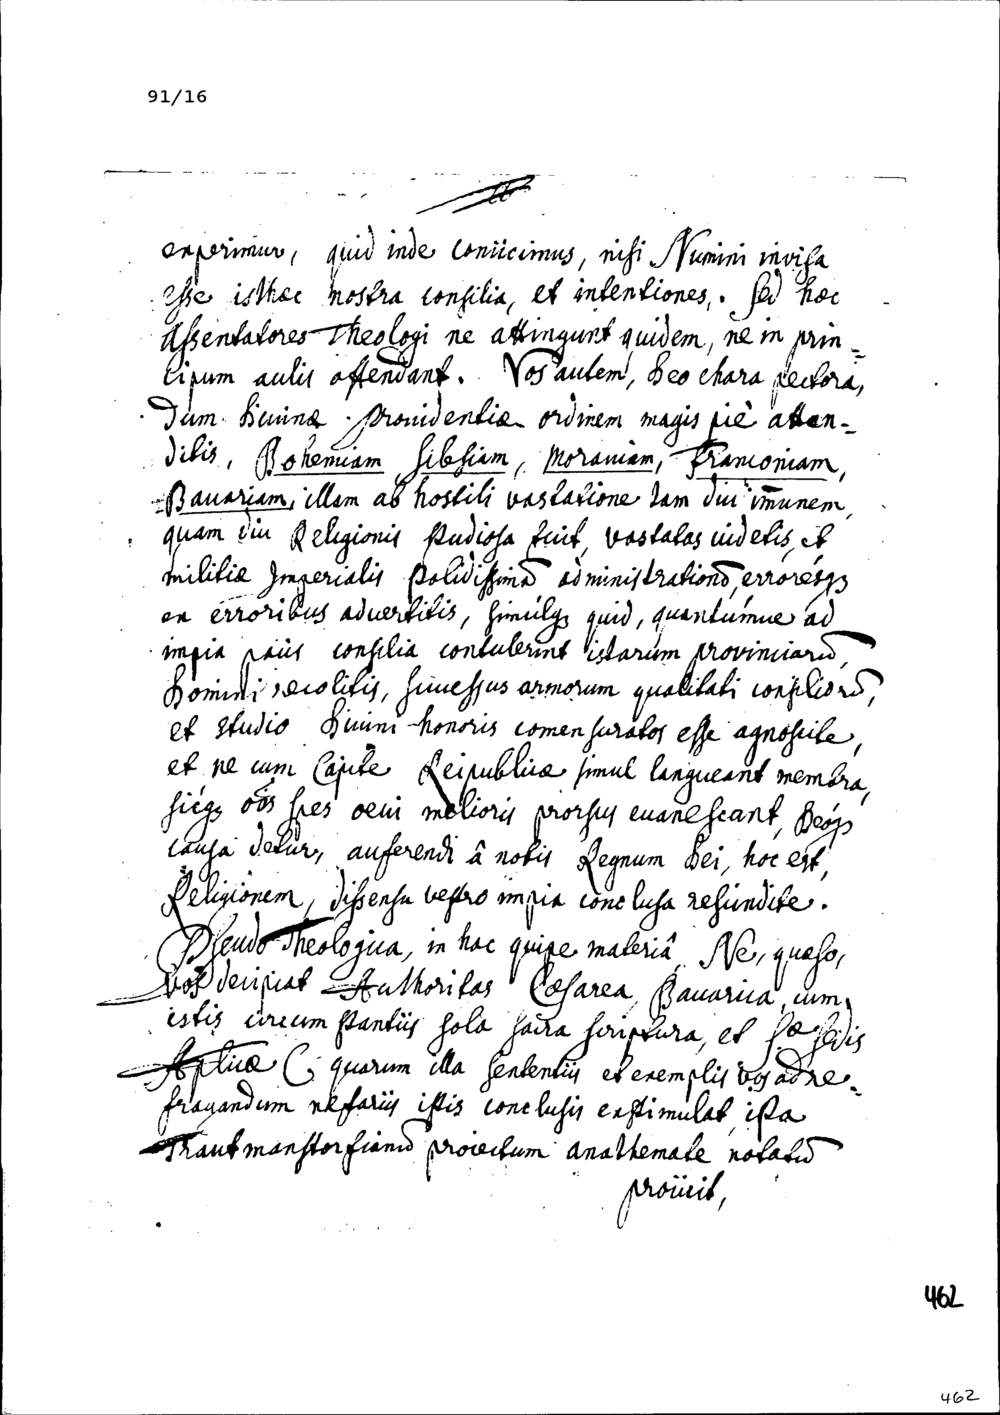 91/16
experimur, quid inde coniicimus, nisi Numini invisa
esse isthæc nostra consilia, et intentiones. Sed hæc
Assentatores Theologi ne attingunt quidem, ne in prin=
cipum aulis offendant. Vos autem, Deo chara pectora,
dum Divinæ Providentiæ ordinem magis piè atten=
ditis, Bohemiam Silesiam, Moraviam, Franconiam,
Bavariam, illam ab hostili vastatione tam diu im̄unem,
quam diu Religionis studiosa fuit, vastatas videtis, et
militiæ Imperialis administrationē, erroresq3
ex erroribus advertitis, simulq3 quid, quantumue ad
impia pacis consilia contulerint istarum provinciarū,
Domini successus armorum qualitati consiliorū,
et studio Divini honoris comensuratos esse agnoscite,
et ne cum Capite Reipublicæ simul langueant membra,
sicq3 oēs spes aevi melioris prorsus evanescant, Deoq3
causa detur, auferendi â nobis Regnum Dei, hoc est,
Religionem, dissensu vestro impia conclusa rescindite.
Pseudo Theologica, in hac quipe materiâ Ne, quæso,
vos decipiat Authoritas Cæsarea, Bavarica, cum
istis circumstantiis sola sacra scriptura, et Sæ Sedis
Aplicæ (; quarum illa sententiis et exemplis vos ad re=
fragandum nefariis istis conclusis exstimulat, ista
Trautmanstorfianū proiectum anathemate notatū
proiicit,
462
462